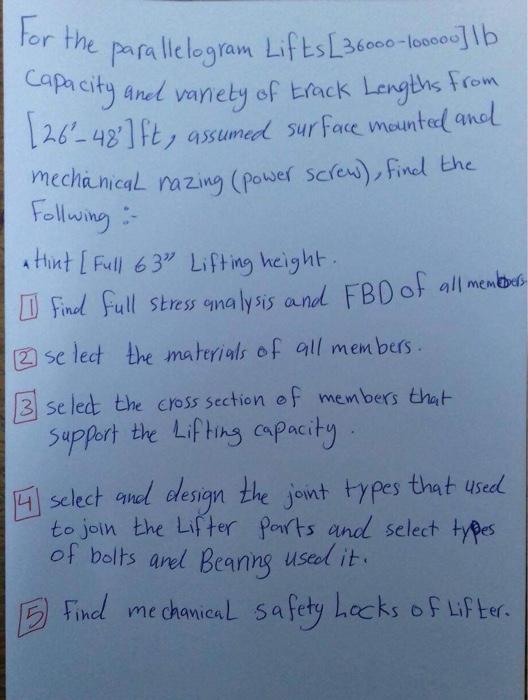 For the parallelogram Lifts[36000-100000]lb
capacity and variety of track Lengths from
[26'-48']ft, assumed surface mounted and
mechanical razing (power screw), find the
Follwing :-
* Hint [Full 63" Lifting height.
1 find full stress analysis and FBD of all members.
2 select the materials of all members.
3 select the cross section of members that
support the Lifting capacity.
4 select and design the joint types that used
to join the Lifter parts and select types
of bolts and Bearing used it.
5 Find mechanical safety Locks of Lifter.